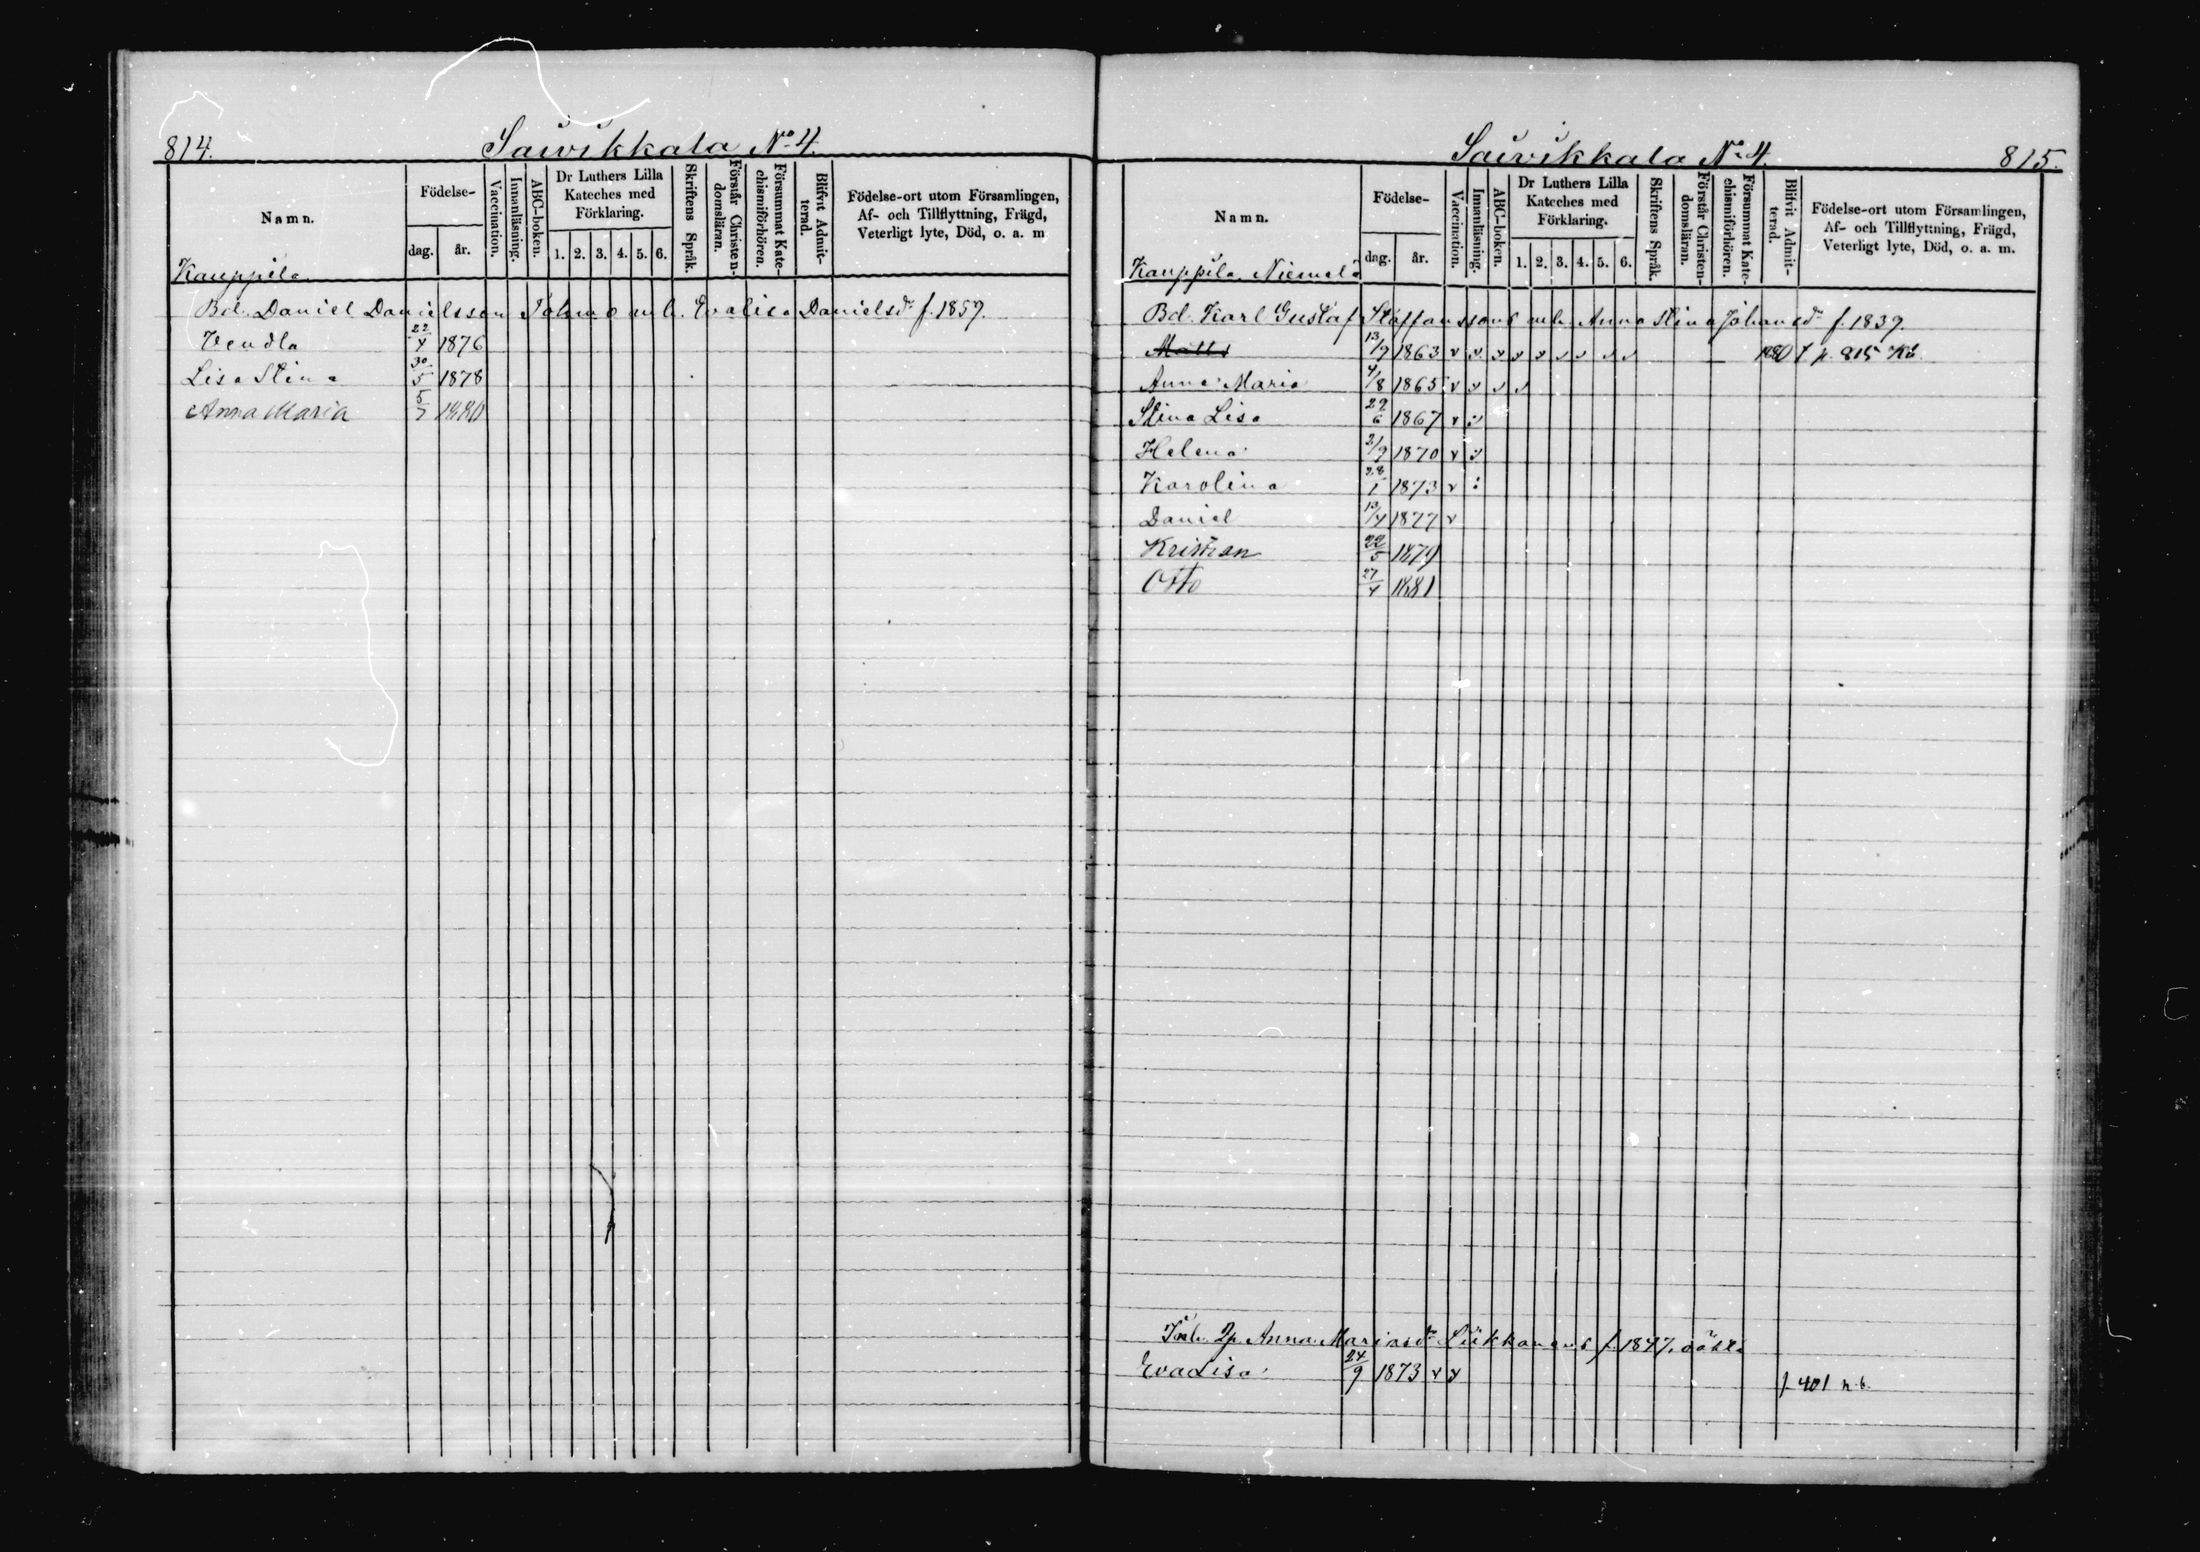 814.
Saivikkala No 4.
Namn.
Födelse-
dag.
år.
Vaccination.
Innanläsning.
ABC-boken.
Dr Luthers Lilla
Kateches med
Förklaring.
1. 2. 3. 4. 5. 6.
Skriftens Språk.
Förstår Christen-
domsläran.
Försummat Kate-
chismiförhören.
Blifvit Admit-
terad.
Födelse-ort utom Församlingen,
Af- och Tillflyttning, Frägd,
Veterligt lyte, Död, o. a. m
Kauppila
Bd. Daniel Danielsson h. Evalisa Danielsdr f. 1857.
Vendla 22/4 1876
Lisa Stina 30/5 1878
Anna Maria 5/7 1880
Saivikkala No 4.
815.
Namn.
Födelse-
dag.
år.
Vaccination.
Innanläsning.
ABC-boken.
Dr Luthers Lilla
Kateches med
Förklaring.
1. 2. 3. 4. 5. 6.
Skriftens Språk.
Förstår Christen-
domsläran.
Försummat Kate-
chismiförhören.
Blifvit Admit-
terad.
Födelse-ort utom Församlingen,
Af- och Tillflyttning, Frägd,
Veterligt lyte, Död, o. a. m.
Kauppila Niemelä
Bd. Karl Gustaf Staffanssons o. h. Anna Stina Johansdr f. 1839.
Matts 13/9 1863 v v v v v v v v v 1880 f p. 815 Kb.
Anna Maria 4/8 1865 v v v v
Stina Lisa 29/6 1867 v v
Helena 2/9 1870 v v
Karolina 28/1 1873 v :
Daniel 13/4 1877 v
Kristian 22/5 1879
Otto 27/4 1881
Inh. Anna Mariasdr Liikkanens f. 1847. oäkta
Eva Lisa 24/9 1873 v v f. 401 n. b.